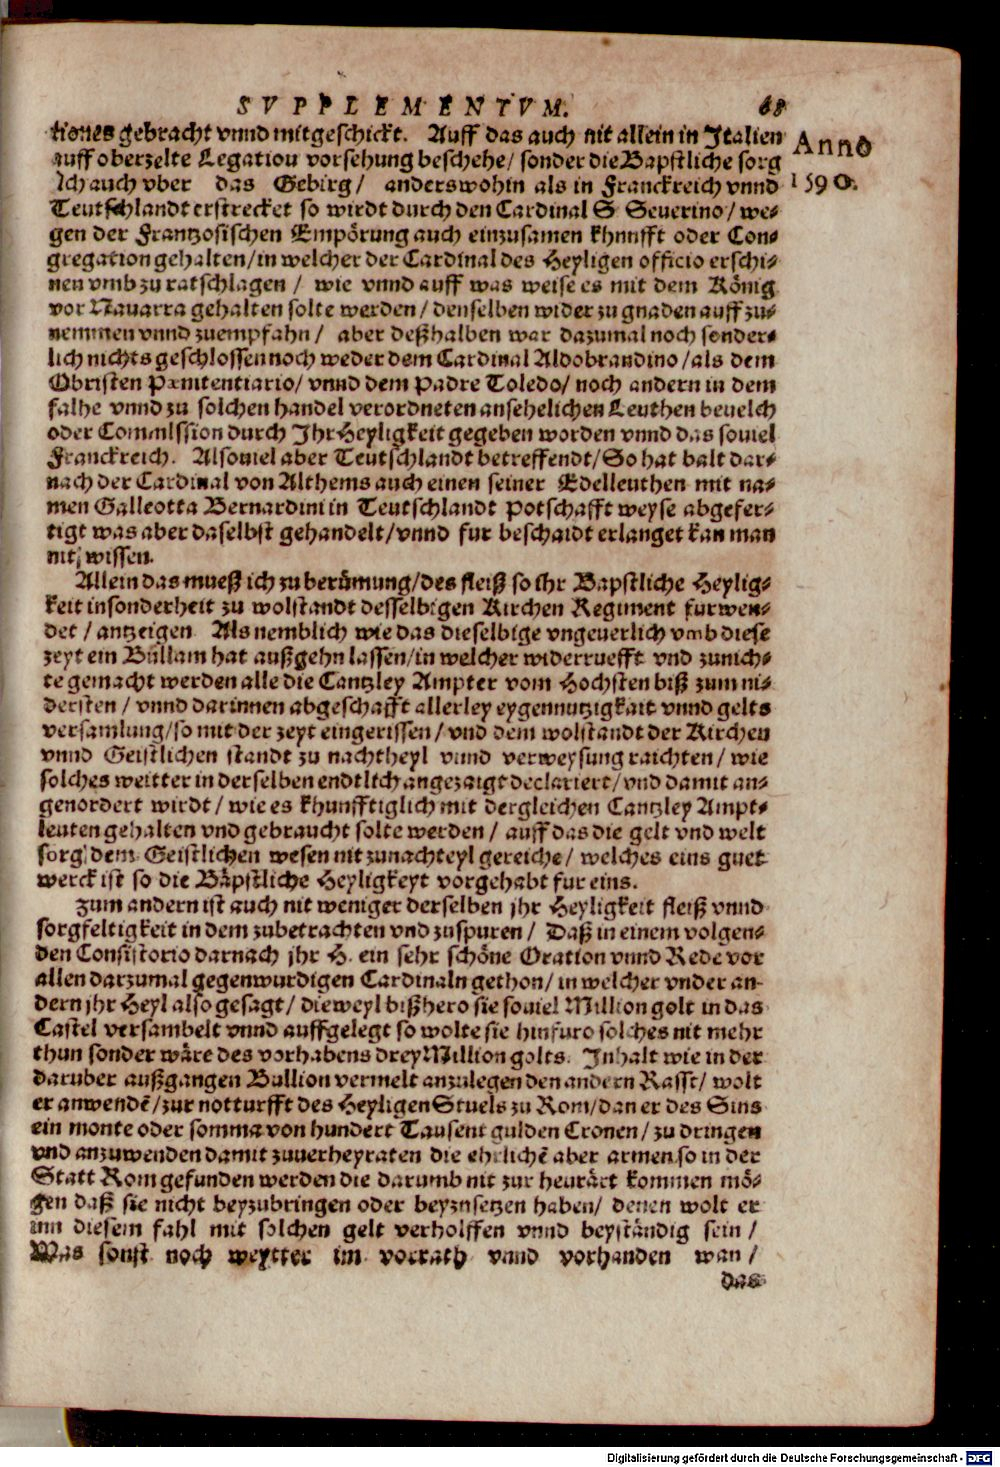 SVPPLEMENTVM. 68
tiones gebracht vnnd mitgeschickt. Auff das auch nit allein in Italien
Anno
auff oberzelte Legation vorsehung beschehe/ sonder die Bapstliche sorg
sich auch vber das Gebirg/ anderswohin als in Franckreich vnnd
1590.
Teutschlandt erstrecket so wirdt durch den Cardinal S Seuerino/ we-
gen der Frantzosischen Empörung auch einzusamen khnnfft oder Con-
gregation gehalten/ in welcher der Cardinal des Heyligen officio erschi-
nen vmb zu ratschlagen / wie vnnd auff was weise es mit dem König
vor Nauarra gehalten solte werden/ denselben wider zu gnaden auff zu-
nemmen vnnd zuempfahn/ aber deßhalben war dazumal noch sonder-
lich nichts geschlossen noch weder dem Cardinal Aldobrandino/ als dem
Obristen Pænitentiario/ vnnd dem Padre Toledo/ noch andern in dem
falhe vnnd zu solchen handel verordneten ansehelichen Leuthen beuelch
oder Commission durch Ihr Heyligkeit gegeben worden vnnd das souiel
Franckreich. Alsouiel aber Teutschlandt betreffendt/ So hat balt dar-
nach der Cardinal von Althems auch einen seiner Edelleuthen mit na-
men Galleotta Bernardini in Teutschlandt Potschafft weyse abgefer-
tigt was aber daselbst gehandelt/ vnnd fur beschaidt erlanget kan man
nit wissen.
Allein das mueß ich zu berümung/ des fleiß so ihr Bapstliche Heylig-
keit insonderheit zu wolstandt desselbigen Kirchen Regiment furwen-
det / antzeigen Als nemblich wie das dieselbige vngeuerlich vmb diese
zeyt ein Bullam hat außgehn lassen/ in welcher widerruefft vnd zunich-
te gemacht werden alle die Cantzley Ampter vom Hochsten biß zum ni-
dersten / vnnd darinnen abgeschafft allerley eygennutzigkait vnnd gelts
versamlung/ so mit der zeyt eingerissen/ vnd dem wolstandt der Kirchen
vnnd Geistlichen standt zu nachtheyl vnnd verweysung raichten/ wie
solches weitter in derselben endtlich angezaigt declariert/ vnd damit an-
genordert wirdt/ wie es khunfftiglich mit dergleichen Cantzley Ampt-
leuten gehalten vnd gebraucht solte werden / auff das die gelt vnd welt
sorg dem Geistlichen wesen nit zunachteyl gereiche/ welches eins guet
werck ist so die Bäpstliche Heyligkeyt vorgehabt fur eins.
Zum andern ist auch nit weniger derselben jhr Heyligkeit fleiß vnnd
sorgfeltigkeit in dem zubetrachten vnd zuspuren/ Daß in einem volgen-
den Consistorio darnach jhr H. ein sehr schöne Oration vnnd Rede vor
allen darzumal gegenwurdigen Cardinaln gethon/ in welcher vnder an-
dern jhr Heyl also gesagt/ dieweyl bißhero sie souiel Million golt in das
Castel versambelt vnnd auffgelegt so wolte sie hinfuro solches nit mehr
thun sonder wäre des vorhabens drey Million golts. Inhalt wie in der
daruber außgangen Bullion vermelt anzulegen den andern Rasst/ wolt
er anwendē/ zur notturfft des Heyligen Stuels zu Rom/ dan er des Sins
ein monte oder somma von hundert Tausent gulden Cronen/ zu dringen
vnd anzuwenden damit zuuerheyraten die ehrlichē aber armen so in der
Statt Rom gefunden werden die darumb nit zur heurärt kommen mö-
gen daß sie nicht beyzubringen oder beyznsetzen haben/ denen wolt er
inn diesem fahl mit solchen gelt verholffen vnnd beyständig sein/
Was sonst noch weytter im vorrath vnnd vorhanden wan/
das
Digitalisierung gefördert durch die Deutsche Forschungsgemeinschaft - DFG